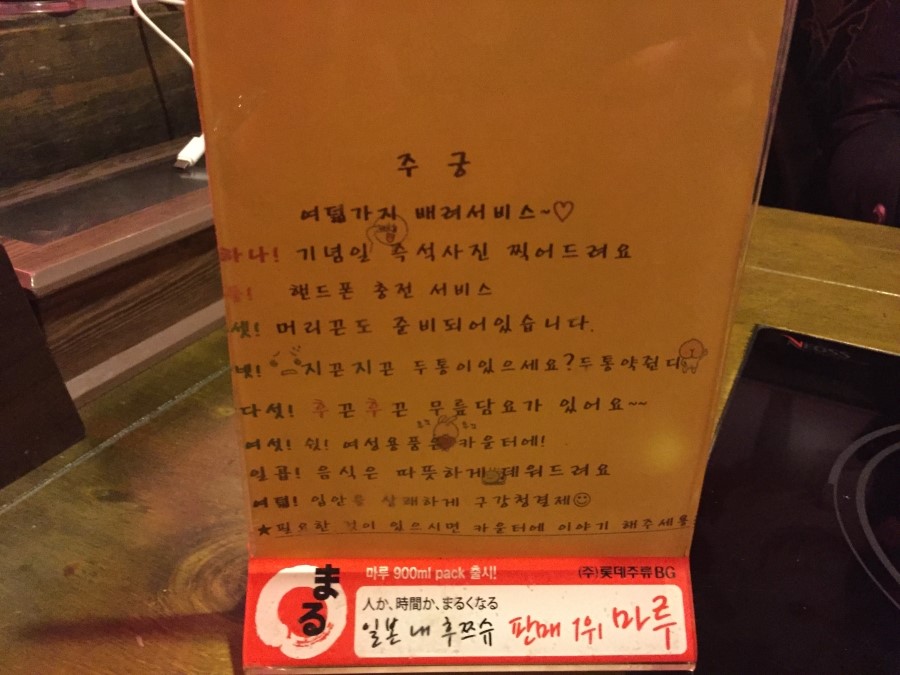 주 궁
여덟가지 배려서비스~♡
찰칵
하나! 기념일 즉석사진 찍어드려요
둘! 핸드폰 충전 서비스
셋! 머리끈도 준비되어있습니다.
넷! 지끈지끈 두통이있으세요? 두통약줜다
다섯! 후끈후끈 무릎담요가 있어요~~
여섯! 쉿! 여성용품은 카운터에!
일곱! 음식은 따뜻하게 데워드려요
여덟! 입안을 상쾌하게 구강청결제☺
★필요한 것이 있으시면 카운터에 이야기 해주세용
NEOSS
まる
마루 900ml pack 출시!
(주)롯데주류BG
人か、時間か、まるくなる
일본 내 후쯔슈 판매 1위 마루